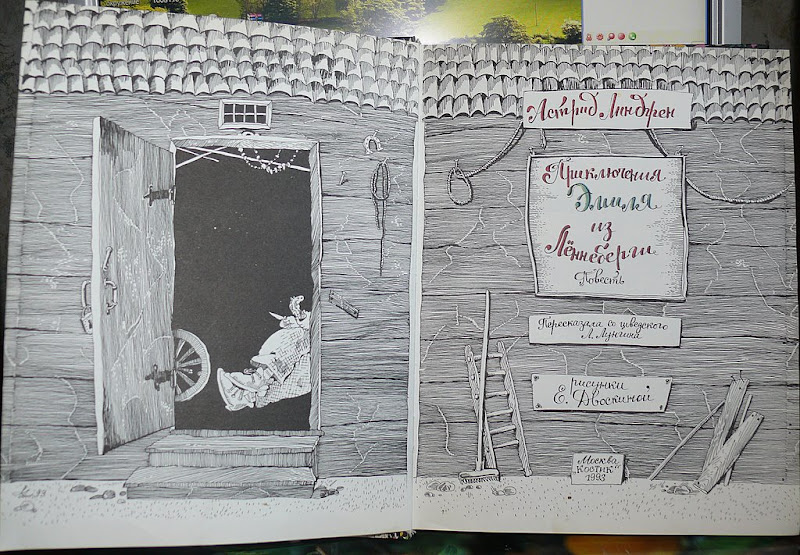 Астрид Линдгрен
Приключения
Эмиля
из
Лённеберги
Повесть
Пересказала со шведского
Л. Лунгина
рисунки
Е. Двоскиной
Москва
"Костик"
1993